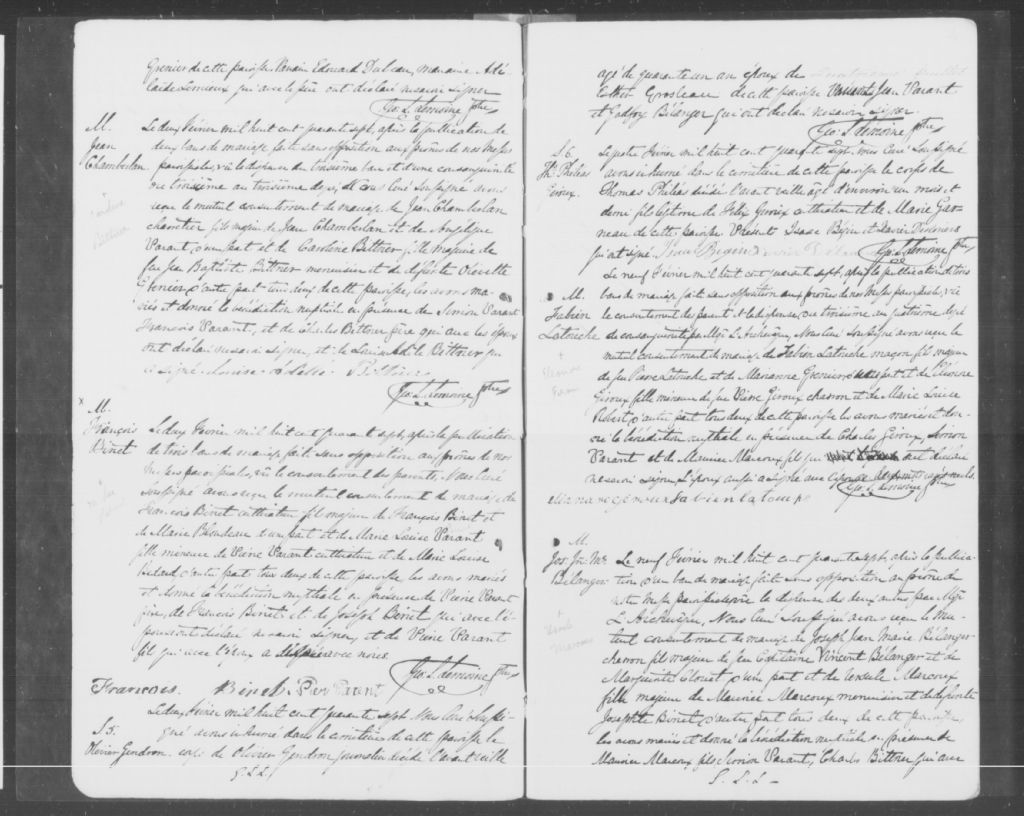 Grenier de cette paroisse Parain Edouard Dubeau, maraine Adé-
laide Lemieux qui avec le père ont déclaré ne savoir signer
Geo. L. Lemoine Ptre
M.
Jean
Chamberlan
Le deux Février mil huit cent quarante sept, après la publication de
deux bans de mariage faite sans opposition aux prônes de nos Messes
paroissiales, vû la dispense du troisième ban et d'une consanguinité
du troisième au troisième degré, Nous Curé soussigné avons
reçu le mutuel consentement de mariage de Jean Chamberlan
charretier fils majeur de Jean Chamberlan et de Angélique
Parant, d'une part et de Caroline Bittner fille majeure de
feu Jean Baptiste Bittner menuisier et de défunte
Grenier d'autre part tous deux de cette paroisse, les avons ma-
riés et donné la bénédiction nuptiale en présence de Simon Parant
François Parant, et de Charles Bittner frère qui avec les époux
ont déclaré ne savoir signer, et de Louise Adéle Bittner qui
a signé. Louise Adele Bittner
Geo. L. Lemoine Ptre
M.
François
Binet
Le deux Fevrier mil huit cent quarante sept, après la publication
de trois bans de mariage fait sans opposition aux prônes de nos
Messes paroissiales, vû le consentement des parents, Nous Curé
soussigné avons reçu le mutuel consentement de mariage de
François Binet cultivateur fils majeur de François Binet et
de Marie Blondeau d'une part et de Marie Louise Parant
fille mineure de Pierre Parant cultivateur et de Marie Louise
d'autre part tous deux de cette paroisse les avons mariés
et donné la bénédiction nuptiale en présence de Pierre Parant
père, de François Binet et de Joseph Binet qui avec l'é-
pouse ont déclaré ne savoir signer, et de Pierre Parant
fils qui avec l'époux a signé avec nous.
Geo. L. Lemoine Ptre
Francois. Binet. Pier Parant
S5.
Olivier Gendron
Le deux Février mil huit cent quarante sept Nous Curé soussi-
gné avons inhumé dans le cimetière de cette paroisse le
corps de Olivier Gendron journalier décédé l'avant veille
G.L.L.
agé de quarante un an époux de
Esther Grosleau de cette paroisse Présents Jean Parant
et Godfroy Bélanger qui ont déclaré ne savoir signer
Geo. L. Lemoine Ptre
S6.
Ths. Philéas
Giroux.
Le quatre Février mil huit cent quarante sept Nous Curé Soussigné
avons inhumé dans le cimetière de cette paroisse le corps de
Thomas Philéas décédé l'avant veille agé d'environ un mois et
demi fils légitime de Félix Giroux cultivateur et de Marie Gar-
neau de cette paroisse. Présents Isaac Bégin et Xavier
qui ont signé Isaac Begin
Geo. L. Lemoine Ptre
M.
Fabien
Latouche
Le neuf Février mil huit cent quarante sept, après la publication de trois
bans de mariage fait sans opposition aux prônes de nos Messes paroissiales, vû
le consentement des parents et la dispense du troisième au quatrième degré
de consanguinité par Mgr L'Archevêque, Nous Curé soussigné avons reçu le
mutuel consentement de mariage de Fabien Latouche maçon fils majeur
de feu Pierre Latouche et de Marianne Grenier d'une part et de Eléonore
Giroux fille mineure de feu Pierre Giroux charron et de Marie Louise
d'autre part tous deux de cette paroisse les avons mariés et don-
né la bénédiction nuptiale en présence de Charles Giroux, Simon
Parant et de Maurice Marcoux fils qui ont déclaré
ne savoir signer L'époux aussi a signé
Geo. L. Lemoine Ptre
Fabien latouche
M.
Jos. Jn. Me.
Bélanger
Le neuf Février mil huit cent quarante sept, après la publica-
tion d'un ban de mariage fait sans opposition au prône de
notre Messe paroissiale, vû la dispense des deux autres par Mgr
L'Archevêque, Nous Curé Soussigné avons reçu le mu-
tuel consentement de mariage de Joseph Jean Marie Bélanger
charron fils majeur de feu Capitaine Vincent Bélanger et de
Marguerite Clouet d'une part et de Ursule Marcoux
fille majeure de Maurice Marcoux menuisier et de défunte
Josephte Binet, d'autre part tous deux de cette paroisse,
les avons mariés et donné la bénédiction nuptiale en présence de
Maurice Marcoux fils Simon Parant, Charles Bittner qui avec
G.L.L.